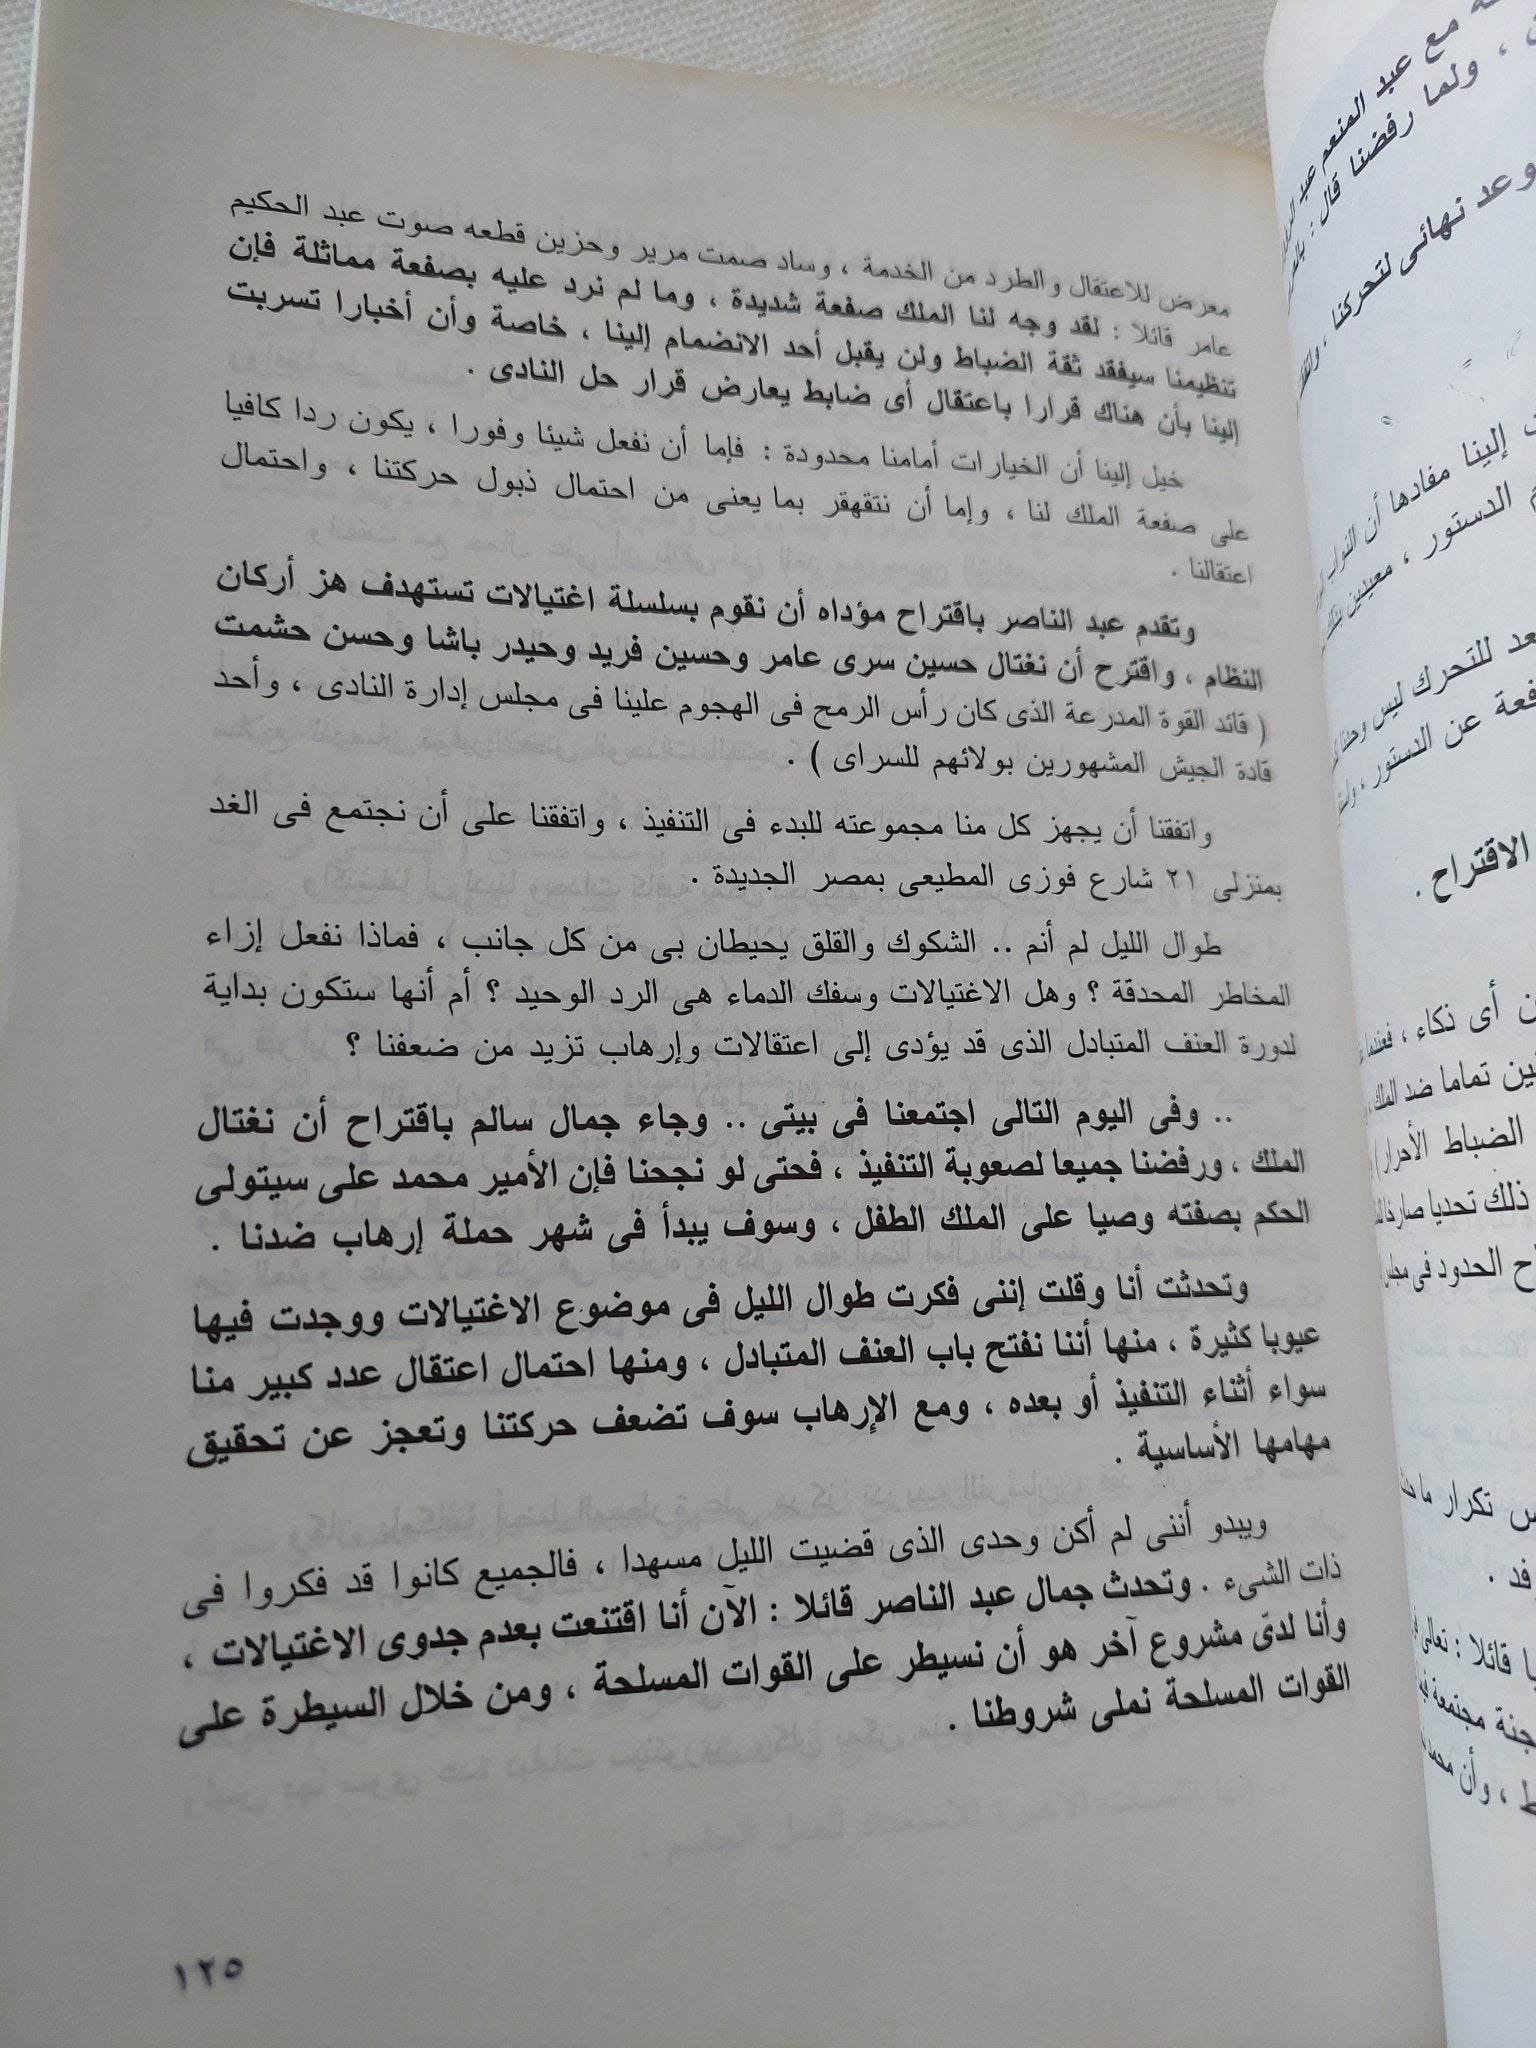 معرض للاعتقال والطرد من الخدمة ، وساد صمت مرير وحزين قطعه صوت عبد الحكيم
عامر قائلا : لقد وجه لنا الملك صفعة شديدة ، وما لم نرد عليه بصفعة مماثلة فإن
تنظيمنا سيفقد ثقة الضباط ولن يقبل أحد الانضمام إلينا ، خاصة وأن أخبارا تسربت
إلينا بأن هناك قرارا باعتقال أى ضابط يعارض قرار حل النادى .
خيل إلينا أن الخيارات أمامنا محدودة : فإما أن نفعل شيئا وفورا ، يكون ردا كافيا
على صفعة الملك لنا ، وإما أن نتقهقر بما يعنى من احتمال ذبول حركتنا ، واحتمال
اعتقالنا .
وتقدم عبد الناصر باقتراح مؤداه أن نقوم بسلسلة اغتيالات تستهدف هز أركان
النظام ، واقترح أن نغتال حسين سرى عامر وحسين فريد وحيدر باشا وحسن حشمت
( قائد القوة المدرعة الذى كان رأس الرمح فى الهجوم علينا فى مجلس إدارة النادى ، وأحد
قادة الجيش المشهورين بولائهم للسراى ) .
واتفقنا أن يجهز كل منا مجموعته للبدء فى التنفيذ ، واتفقنا على أن نجتمع فى الغد
بمنزلى ٢١ شارع فوزى المطيعى بمصر الجديدة .
طوال الليل لم أنم .. الشكوك والقلق يحيطان بى من كل جانب ، فماذا نفعل إزاء
المخاطر المحدقة ؟ وهل الاغتيالات وسفك الدماء هى الرد الوحيد ؟ أم أنها ستكون بداية
لدورة العنف المتبادل الذى قد يؤدى إلى اعتقالات وإرهاب تزيد من ضعفنا ؟
.. وفى اليوم التالى اجتمعنا فى بيتى .. وجاء جمال سالم باقتراح أن نغتال
الملك ، ورفضنا جميعا لصعوبة التنفيذ ، فحتى لو نجحنا فإن الأمير محمد على سيتولى
الحكم بصفته وصيا على الملك الطفل ، وسوف يبدأ فى شهر حملة إرهاب ضدنا .
وتحدثت أنا وقلت إننى فكرت طوال الليل فى موضوع الاغتيالات ووجدت فيها
عيوبا كثيرة ، منها أننا نفتح باب العنف المتبادل ، ومنها احتمال اعتقال عدد كبير منا
سواء أثناء التنفيذ أو بعده ، ومع الإرهاب سوف تضعف حركتنا وتعجز عن تحقيق
مهامها الأساسية .
ويبدو أننى لم أكن وحدى الذى قضيت الليل مسهدا ، فالجميع كانوا قد فكروا فى
ذات الشىء . وتحدث جمال عبد الناصر قائلا : الآن أنا اقتنعت بعدم جدوى الاغتيالات ،
وأنا لدىّ مشروع آخر هو أن نسيطر على القوات المسلحة ، ومن خلال السيطرة على
القوات المسلحة نملى شروطنا .
١٢٥
مع عبد المنعم عبد
، ولما رفضنا قال :
وعد نهائى لتحركنا ،
إلينا مفادها أن النواب
الدستور ، معينين
للتحرك ليس وحدنا
عن الدستور ،
الاقتراح .
أى ذكاء ،
تماما ضد الملك
الضباط الأحرار
ذلك تحديا صارخا
الحدود فى مجلس
تكرار ما حدث
قائلا : تعالى
مجتمعة
، وأن محمد